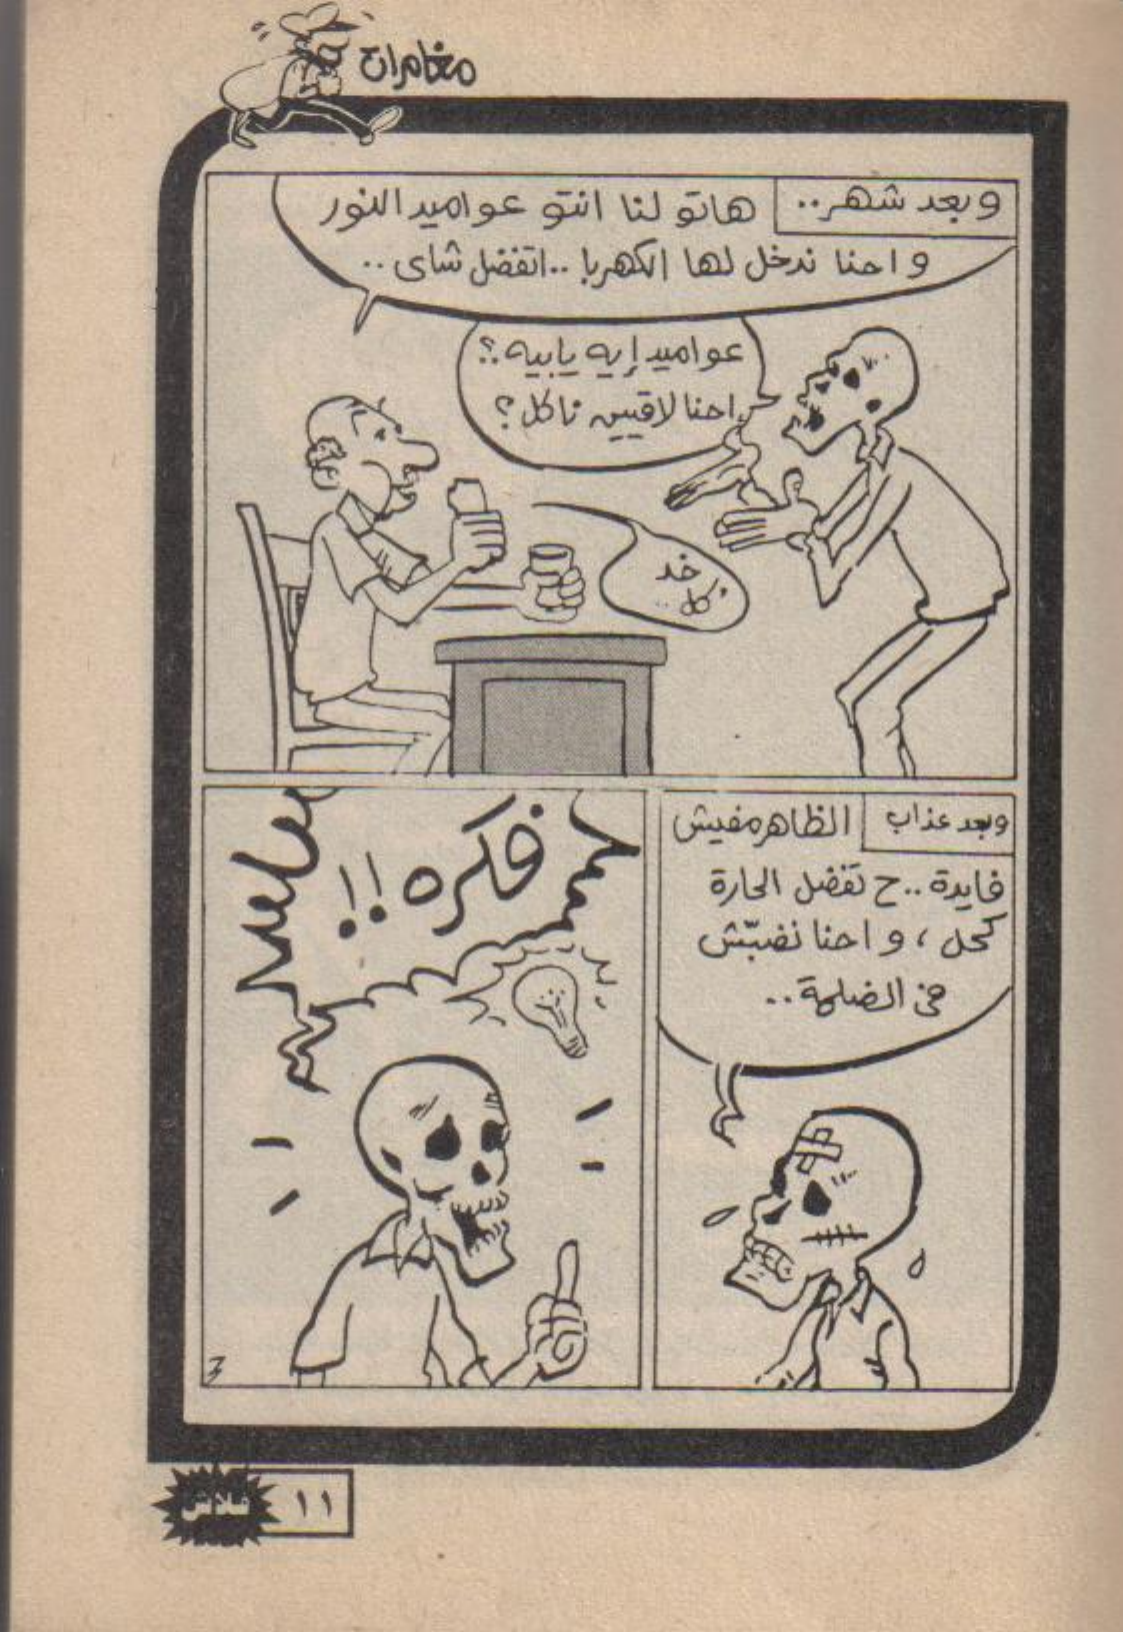 مغامرات
وبعد شهر..
هاتو لنا انتو عواميد النور
واحنا ندخل لها الكهربا.. اتفضل شاى..
عواميد إيه يابيه..؟
احنا لاقيين ناكل؟
خد
كل..
وبعد عذاب
الظاهر مفيش
فايدة.. ح تفضل الحارة
كحل، واحنا نضبّش
فى الضلمة..
فكره!!
١١
فلاش